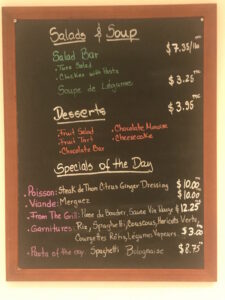 Salads & Soup
Salad Bar $7.35/lb
• Tuna Salad
• Chicken with Pasta
Soupe de Légume $3.25
Desserts $3.95
• Fruit Salad • Chocolate Mousse
• Fruit Tart • Cheesecake
• Chocolate Bar
Specials of the Day
• Poisson: Steak de Thon Citrus Ginger Dressing $10.00
• Viande: Merguez $10.00
• From The Grill: Piece du Boucher, Sauce Vin Rouge $12.25
• Garnitures: Riz, Spaghetti, Couscous, Haricots Verts,
Courgettes Rôtis, Légumes Vapeurs $3.00
Pasta of the day Spaghetti Bolognaise $8.75